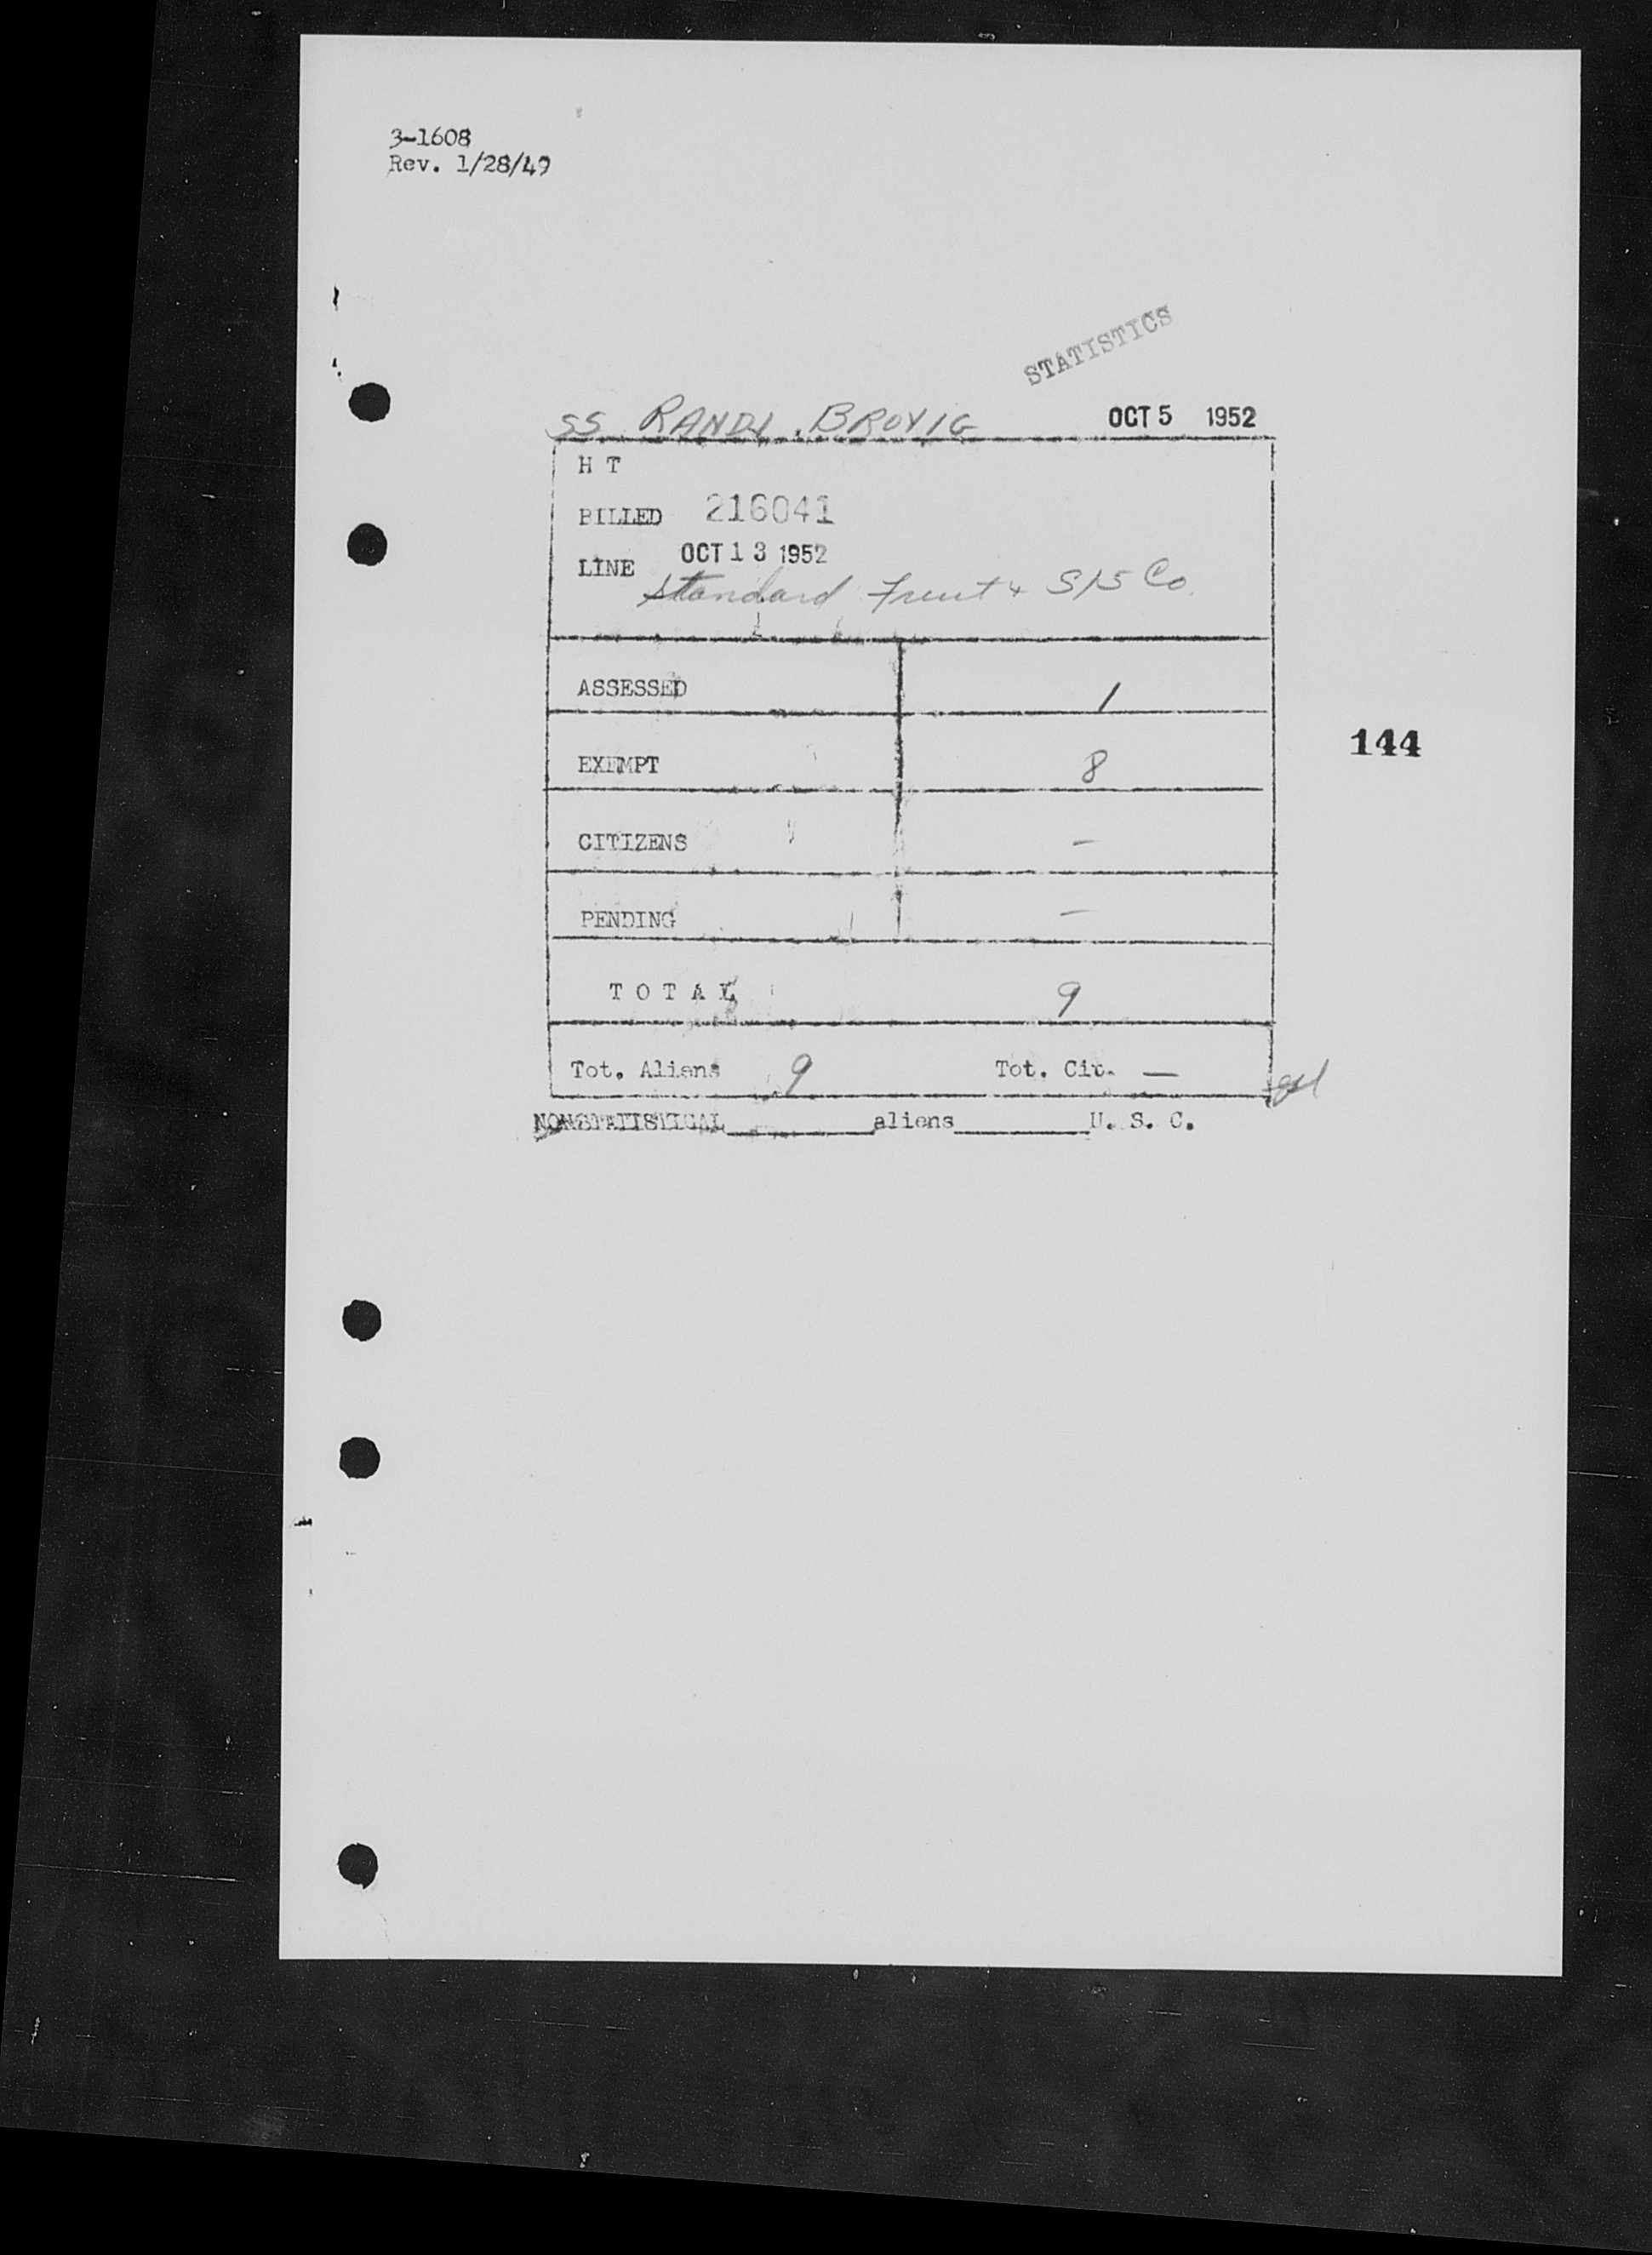 3-1608
Rev. 1/28/49
STATISTICS
SS RANDI BROVIG OCT 5 1952
H T
BILLED 216041
OCT 13 1952
LINE Standard Fruit & S/S Co.
ASSESSED 1
144
EXEMPT 8
CITIZENS —
PENDING —
TOTAL 9
Tot. Aliens 9 Tot. Cit. —
NONSTATISTICAL aliens U. S. C.